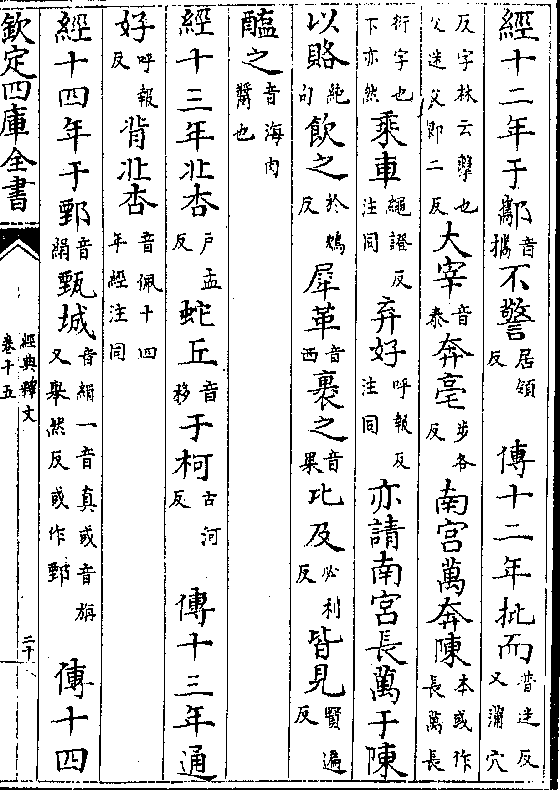 經十二年于酅音攜不警居領反傳十二年批而普迷反又蒲穴
反字林云擊也父迷父即二反大宰音泰奔亳步各反南宮萬奔陳本或作長萬長
衍字也下亦然乘車繩證反注同弃好呼報反注同亦請南宮長萬于陳
以賂絶句飲之於鴆反犀革音西裹之音果比及必利反皆見賢遍反
醢之音海肉醬也
經十三年北杏戶孟反蛇丘音移于柯古河反傳十三年通
好呼報反背北杏音佩十四年經注同
經十四年于鄄音絹甄城音絹一音真或音旃又舉然反或作鄄傳十四
欽定四庫全書
經典釋文
卷十五
二十